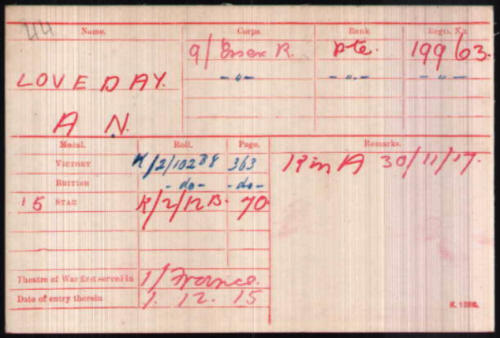 Name. Corps. Rank Regtl. No.
9/Essex R. Pte. 19963.
LOVEDAY. -"- -"- -"-
A N.
Medal. Roll. Page. Remarks.
VICTORY K/2/102B8 363 K in A 30/11/17.
BRITISH -do- -do-
15 STAR K/2/12B. 70
Theatre of War first served in 1/France.
Date of entry therein 1. 12. 15
K. 1380.